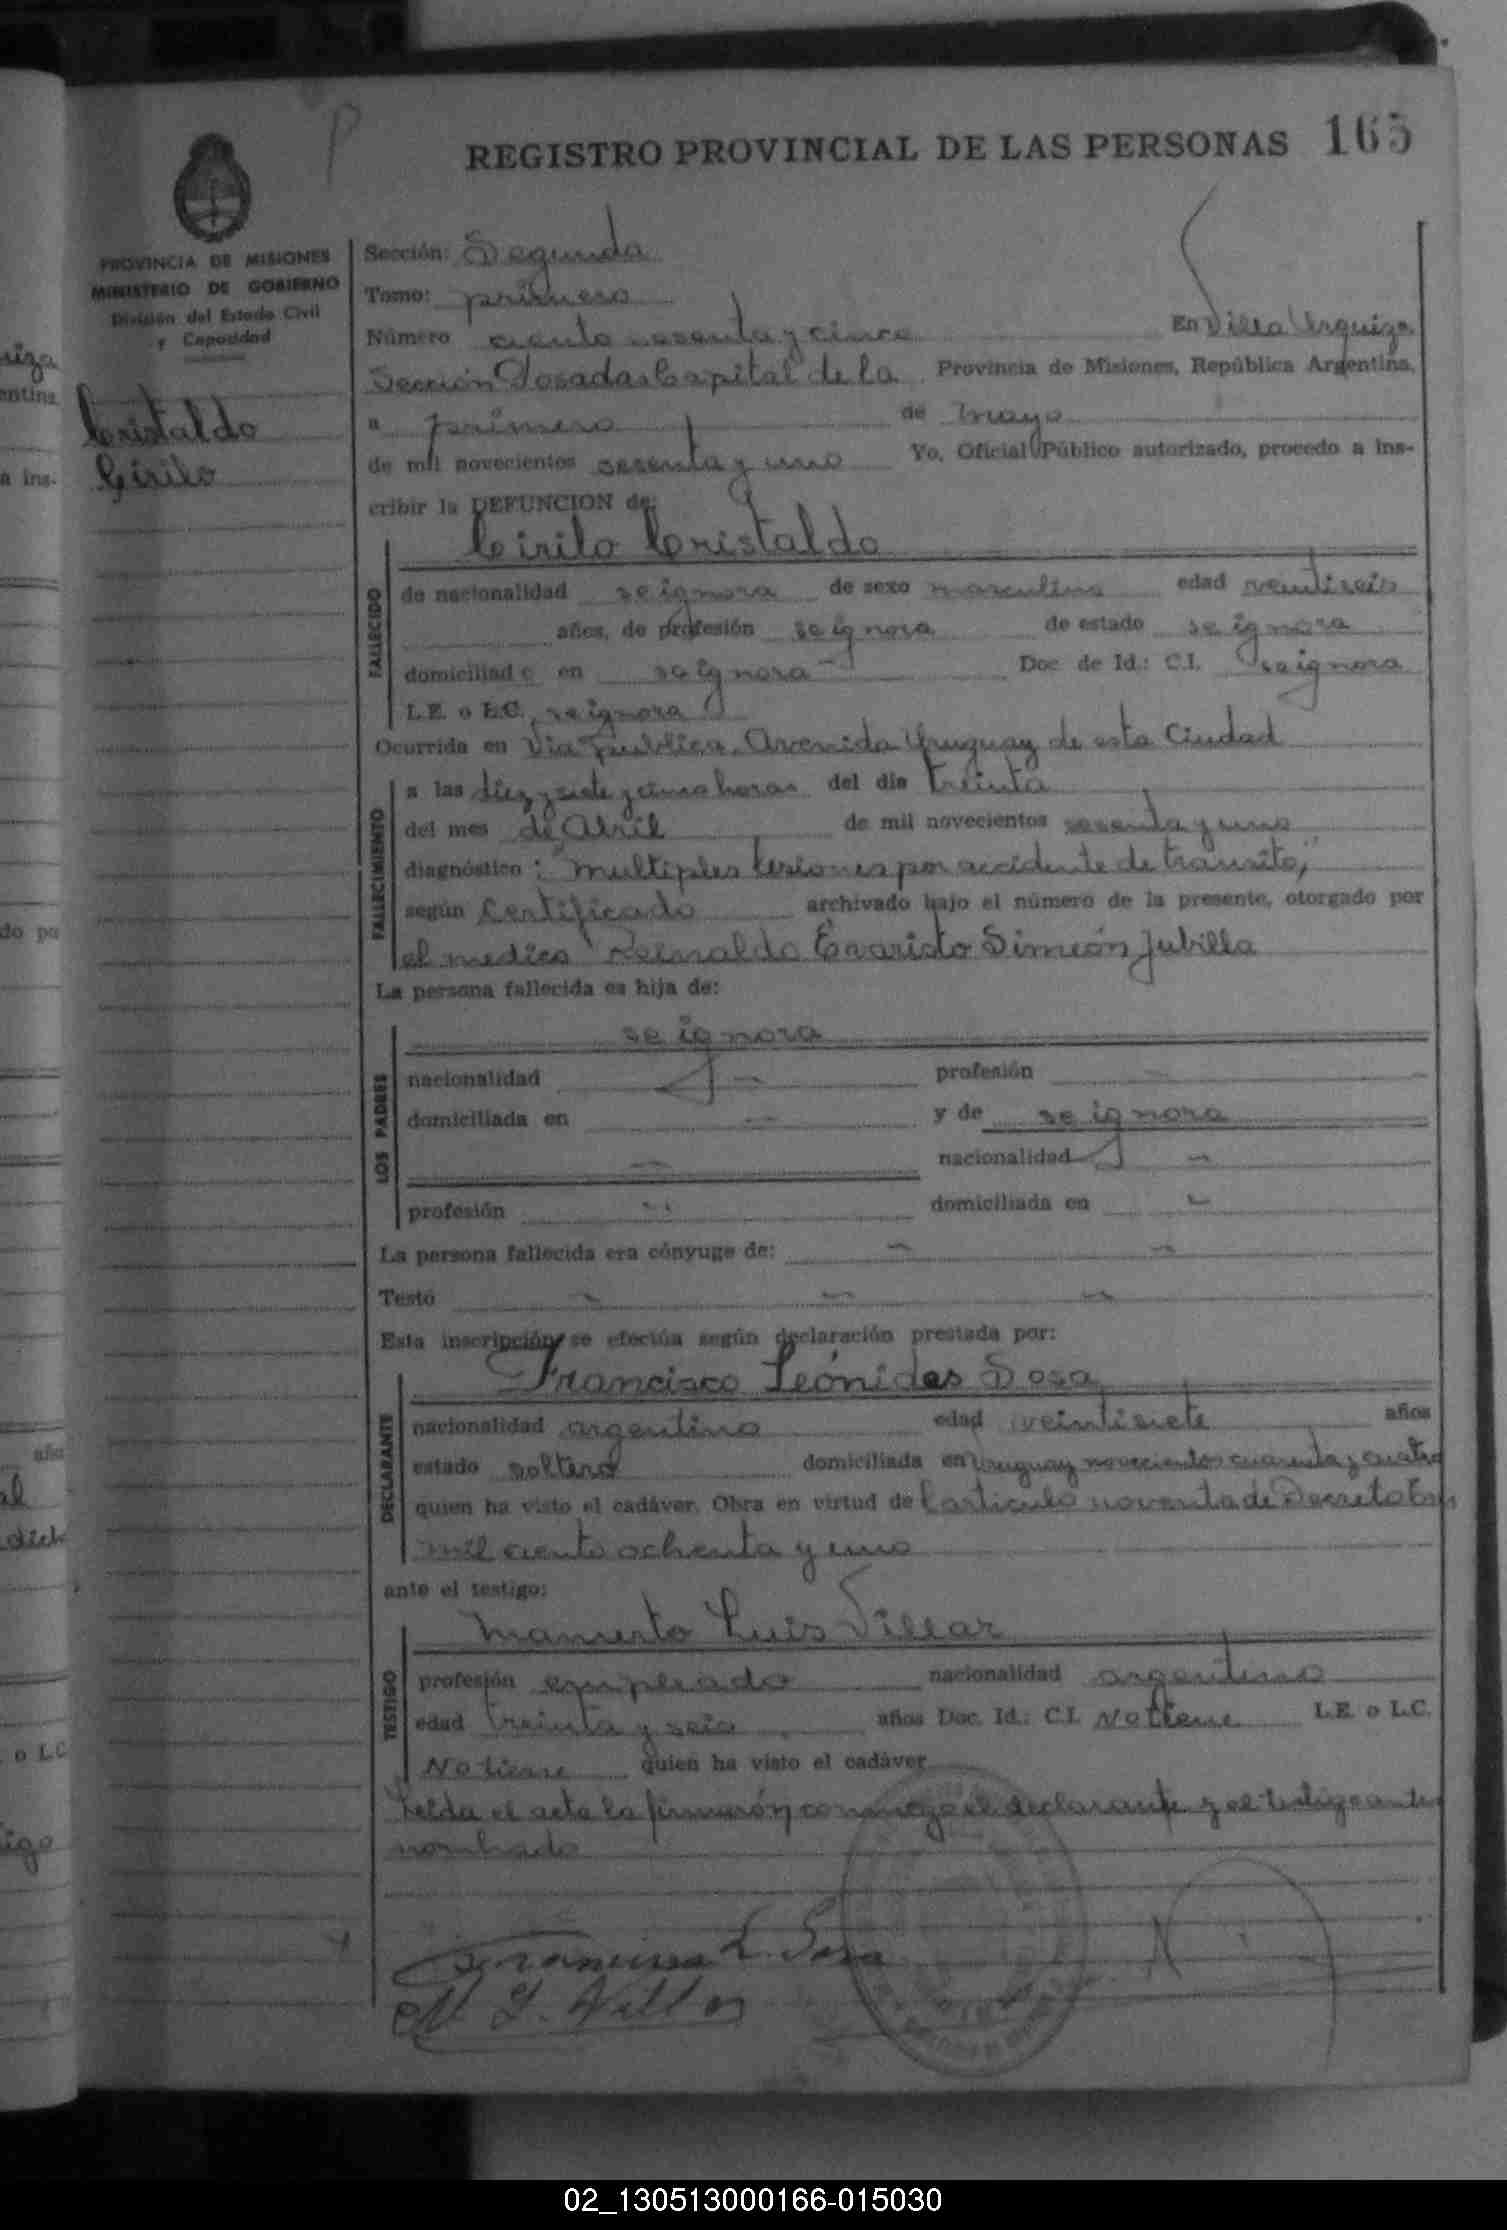 REGISTRO PROVINCIAL DE LAS PERSONAS 165
P
PROVINCIA DE MISIONES
MINISTERIO DE GOBIERNO
División del Estado Civil
y Capacidad
Cristaldo
Cirilo
Sección: Segunda
Tomo: primero
Número ciento sesenta y cinco En Villa Urquiza
Sección Posadas Capital de la Provincia de Misiones, República Argentina,
a primero de mayo
de mil novecientos sesenta y uno Yo, Oficial Público autorizado, procedo a ins-
cribir la DEFUNCION de:
Cirilo Cristaldo
FALLECIDO
de nacionalidad se ignora de sexo masculino edad veintiseis
años, de profesión se ignora de estado se ignora
domiciliado en se ignora Doc. de Id.: C.I. se ignora
L.E. o L.C. se ignora
Ocurrida en Via publica. Avenida Uruguay de esta Ciudad
FALLECIMIENTO
a las diez y siete y cinco horas del dia treinta
del mes de Abril de mil novecientos sesenta y uno
diagnóstico: "multiples lesiones por accidente de transito,"
según Certificado archivado bajo el número de la presente, otorgado por
el medico Reinaldo Evaristo Simeón Jubilla
La persona fallecida es hija de:
LOS PADRES
se ignora
nacionalidad profesión
domiciliada en y de se ignora
nacionalidad
profesión domiciliada en
La persona fallecida era cónyuge de:
Testó
Esta inscripción se efectúa según declaración prestada por:
Francisco Leónidas Sosa
DECLARANTE
nacionalidad argentino edad veintisiete años
estado soltero domiciliada en Uruguay novecientos cuarenta y cuatro
quien ha visto el cadáver. Obra en virtud del articulo noventa de Decreto Ley
mil ciento ochenta y uno
ante el testigo:
Mamerto Luis Villar
TESTIGO
profesión empleado nacionalidad argentino
edad treinta y seis años Doc. Id.: C.I. No tiene L.E. o L.C.
No tiene quien ha visto el cadáver
Leída el acta la firmarón conmigo el declarante y el testigo ante
nombrado
Francisco L. Sosa
M. L. Villar
02_130513000166-015030